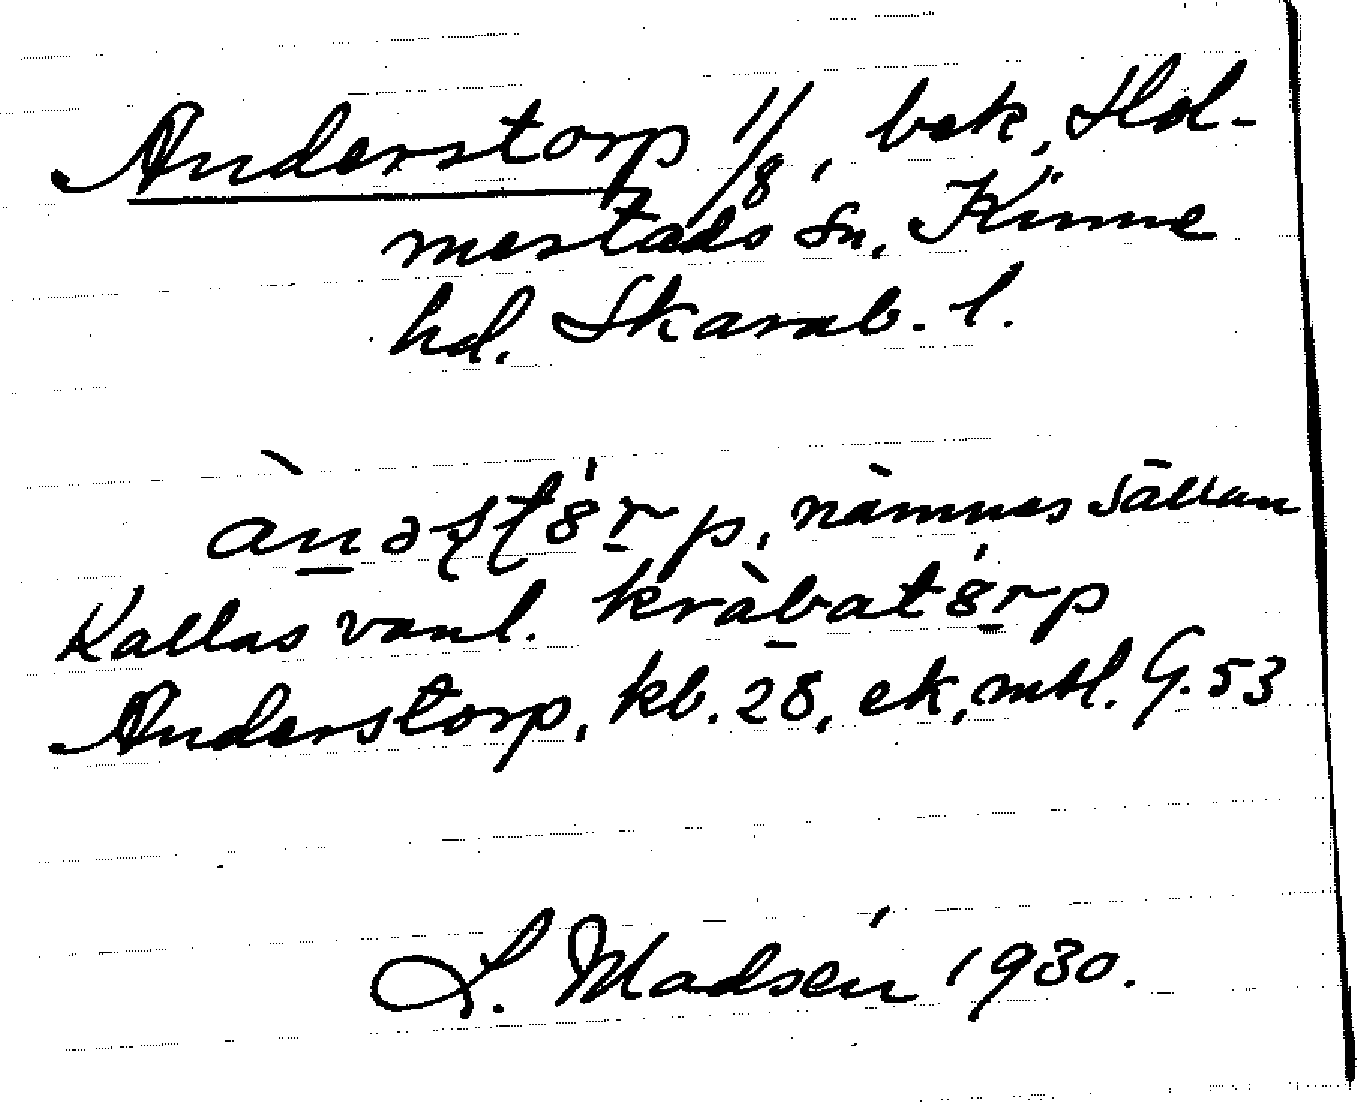 Anderstorp 1/8, bek, Hol-
mestads sn, Kinne
hd. Skarab. l.
ànəʂʈ8́rp, nämnes sällan
Kallas vanl. kràbat8́rp
Anderstorp, kb. 28, ek, mtl. G. 53
L. Madsén 1930.